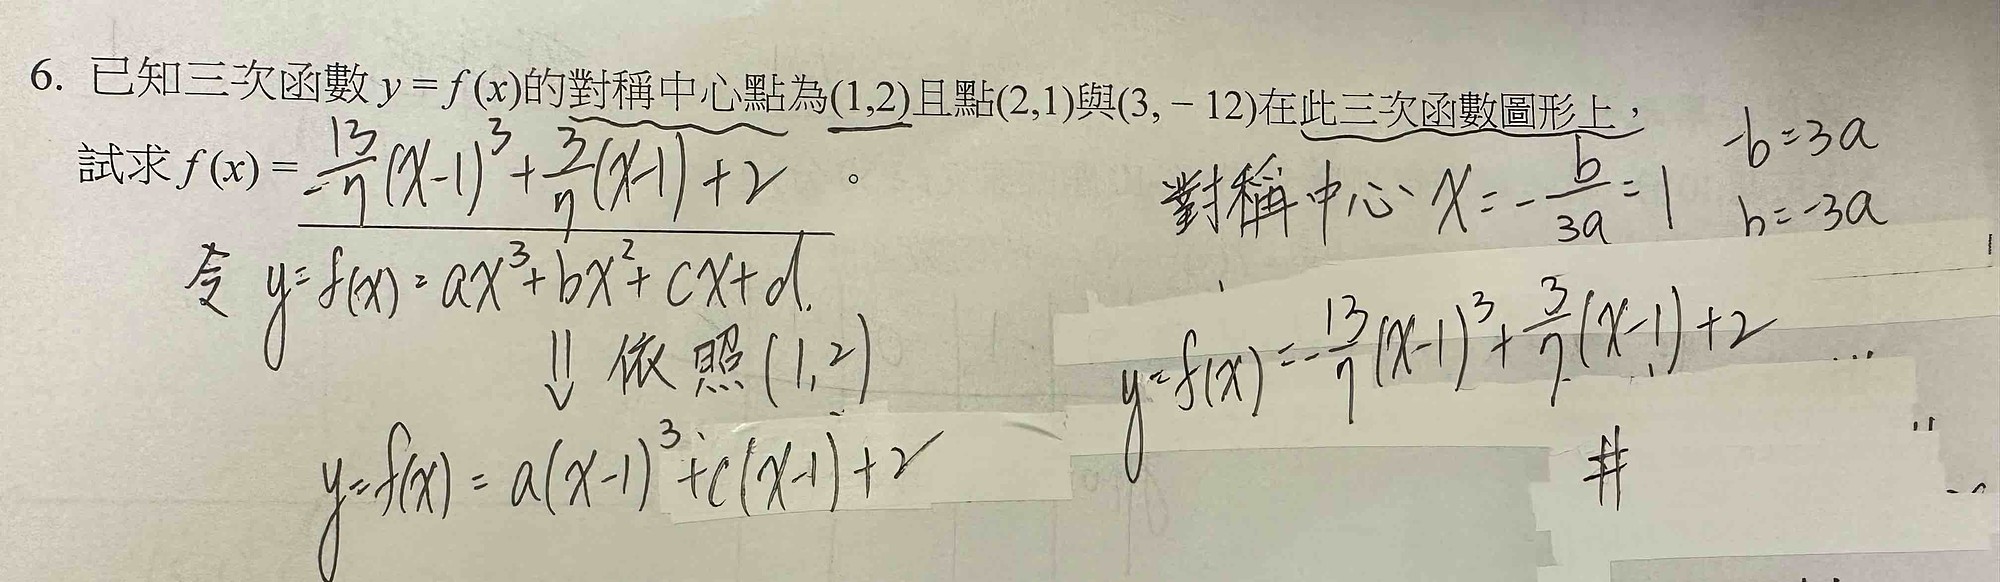 6. 已知三次函數 y = f (x)的對稱中心點為(1,2)且點(2,1)與(3, − 12)在此三次函數圖形上，
試求 f (x) = -13/7 (x-1)³ + 3/7 (x-1) + 2 。
對稱中心 x = - b/3a = 1
-b = 3a
b = -3a
令 y = f(x) = ax³ + bx² + cx + d.
⇓ 依照 (1,2)
y = f(x) = a(x-1)³ + c(x-1) + 2
y = f(x) = -13/7 (x-1)³ + 3/7 (x-1) + 2
#